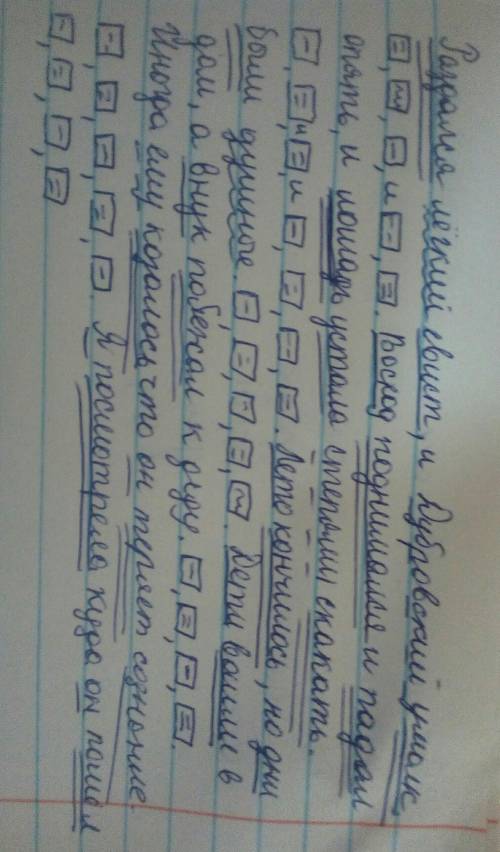 Раздался лёгкий свист, и Дубровский умолк.
[=], [~], [-], и [-], [=]. Восход поднимался и падал
опять, и лошадь устала степями скакать.
[-], [=] и [=] и [-], [=], [-], [=]. Лето кончилось, но дни
были душные. [-], [=], [-], [=], [~]. Дети вошли в
дом, а внук побежал к деду. [-], [=], [-], [=].
Иногда ему казалось что он теряет сознание.
[-], [=], [=], [=], [-]. Я посмотрела куда он пошёл
[-], [=], [-], [=]